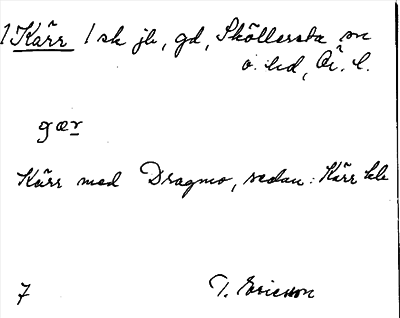 1 Kärr 1 sk jb, gd, Sköllersta sn
o. hd, Ör. l.
gær
Kärr med Dragmo, sedan: Kärr
7 T. Ericsson